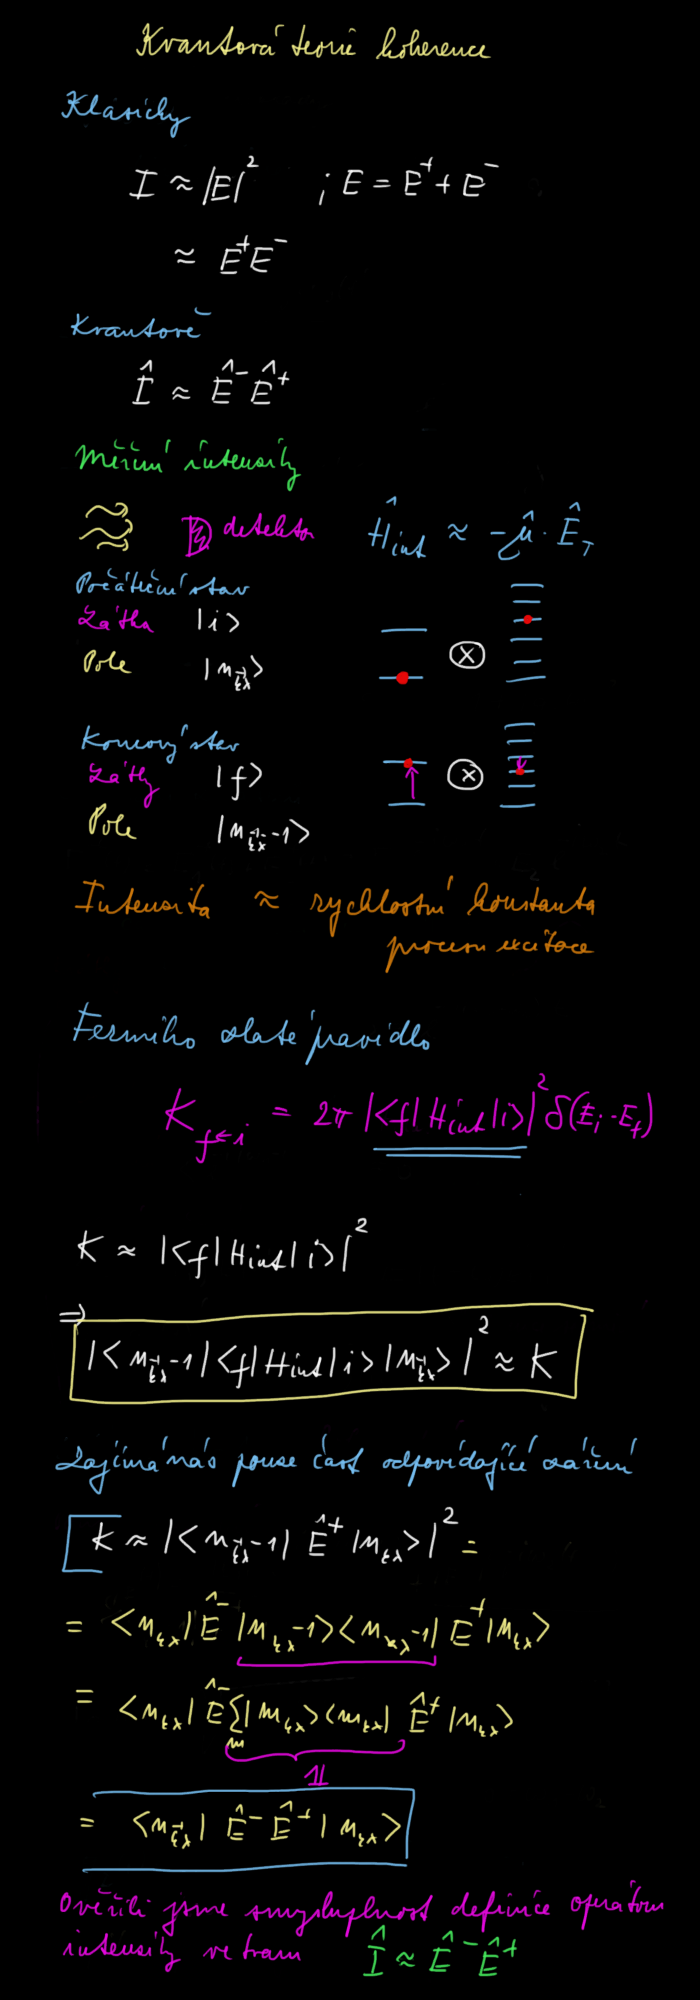 Kvantová teorie koherence
Klasicky
I ≈ |E|² ; E = E⁺ + E⁻
≈ E⁺E⁻
Kvantově
Î ≈ Ê⁻ Ê⁺
Měření intensity
detektor Ĥ_int ≈ -μ̂ · Ê_T
Počáteční stav
Látka |i>
Pole |n_k⃗λ>
⊗
Koncový stav
Látky |f>
⊗
Pole |n_k⃗λ-1>
Intensita ≈ rychlostní konstanta
procesu excitace
Fermiho zlaté pravidlo
K_f←i = 2π |<f|H_int|i>|² δ(E_i - E_f)
K ≈ |<f|H_int|i>|²
⇒
|<n_k⃗λ-1|<f|H_int|i>|n_k⃗λ>|² ≈ K
Zajímá nás pouze část odpovídající záření
K ≈ |<n_k⃗λ-1| Ê⁺ |n_kλ>|² =
= <n_kλ| Ê⁻ |n_kλ-1><n_kλ-1| E⁺ |n_kλ>
= <n_kλ| Ê⁻ Σ_m |m_kλ><m_kλ| Ê⁺ |n_kλ>
𝟙
= <n_k⃗λ| Ê⁻ Ê⁺ | n_kλ>
Ověřili jsme smysluplnost definice operátoru
intensity ve tvaru Î ≈ Ê⁻ Ê⁺